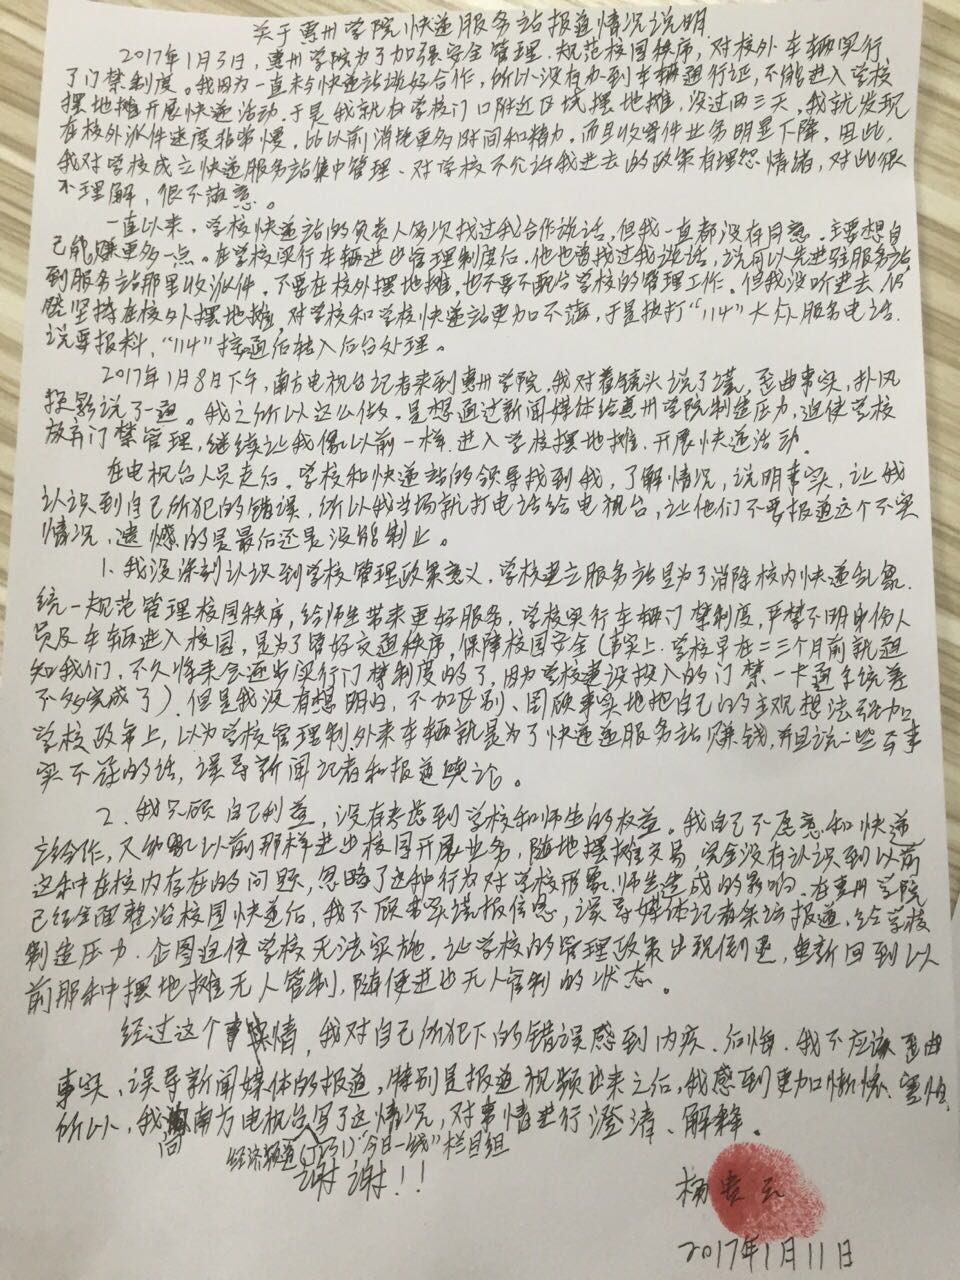 关于惠州学院快递服务站报道情况说明
2017年1月3日，惠州学院为了加强安全管理、规范校园秩序，对校外车辆实行
了门禁制度。我因为一直未与快递站谈好合作，所以没有办到车辆通行证，不能进入学校
摆地摊开展快递活动。于是我就在学校门口附近区域摆地摊，没过两三天，我就发现
在校外派件速度非常慢，比以前消耗更多时间和精力。而且收寄件业务明显下降，因此，
我对学校成立快递服务站集中管理、对学校不允许我进去的政策有埋怨情绪，对此很
不理解，很不满意。
一直以来，学校快递站的负责人多次找过我合作谈话，但我一直都没有同意，主要想自
己能赚更多一点。在学校实行车辆进出管理制度后，他也曾找过我谈话，说可以先进驻服务站
到服务站那里收派件，不要在校外摆地摊，也不要不配合学校的管理工作。但我没听进去，仍
然坚持在校外摆地摊，对学校和学校快递站更加不满，于是拨打“114”大众服务电话，
说要报料，“114”接通后转入后台处理。
2017年1月8日下午，南方电视台记者来到惠州学院，我对着镜头说了谎，歪曲事实，扑风
捉影说了一通。我之所以这么做，是想通过新闻媒体给惠州学院制造压力，迫使学校
放弃门禁管理，继续让我像以前一样，进入学校摆地摊、开展快递活动。
在电视台人员走后，学校和快递站的领导找到我，了解情况，说明事实，让我
认识到自己所犯的错误，所以我当场就打电话给电视台，让他们不要报道这个不实
情况，遗憾的是最后还是没能制止。
1、我没深刻认识到学校管理政策意义，学校建立服务站是为了消除校内快递乱象，
统一规范管理校园秩序，给师生带来更好服务，学校实行车辆门禁制度，严禁不明身份人
员及车辆进入校园，是为了管好交通秩序，保障校园安全（事实上，学校早在二三个月前就通
知我们，不久将来会逐步实行门禁制度的了，因为学校建设投入的门禁一卡通系统差
不多完成了）。但是我没有想明白，不加区别、罔顾事实地把自己的主观想法强加
学校政策上，以为学校管理制外来车辆就是为了快递递服务站赚钱，并且说一些与事
实不符的话，误导新闻记者和报道舆论。
2、我只顾自己利益，没有考虑到学校和师生的权益。我自己不愿意和快递
站合作，又幻象以前那样进出校园开展业务，随地摆摊交易，完全没有认识到以前
这种在校内存在的问题，忽略了这种行为对学校形象、师生造成的影响。在惠州学院
已经全面整治校园快递后，我不顾事实谎报信息，误导媒体记者采访报道，给学校
制造压力，企图迫使学校无法实施，让学校的管理政策出现倒退，重新回到以
前那种摆地摊无人管制，随便进出无人管制的状态。
经过这个事情，我对自己所犯下的错误感到内疚、后悔，我不应该歪曲
事实、误导新闻媒体的报道，特别是报道视频出来之后，我感到更加惭愧、
所以，我向南方电视台写了这情况，对事情进行澄清、解释。
经济频道（TVS1）“今日一线”栏目组
谢谢！！
杨贵云
2017年1月11日